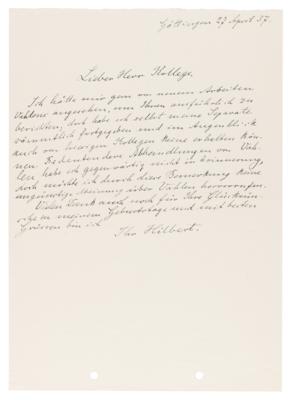 Göttingen 27 April 37.
Lieber Herr Kollege,
Ich hätte mir gern die neuen Arbeiten
Vahlens angesehen, um Ihnen ausführlich zu
berichten, doch habe ich selbst meine Separate
sämtlich fortgegeben und im Augenblick
auch von hiesigen Kollegen keine erhalten kön-
nen. Bedeutendere Abhandlungen von Vah-
len habe ich gegenwärtig nicht in Erinnerung,
doch möchte ich durch diese Bemerkung keine
ungünstige Meinung über Vahlen hervorrufen.
Vielen Dank auch noch für Ihre Glückwün-
sche zu meinem Geburtstage und mit besten
Grüssen bin ich
Ihr Hilbert.